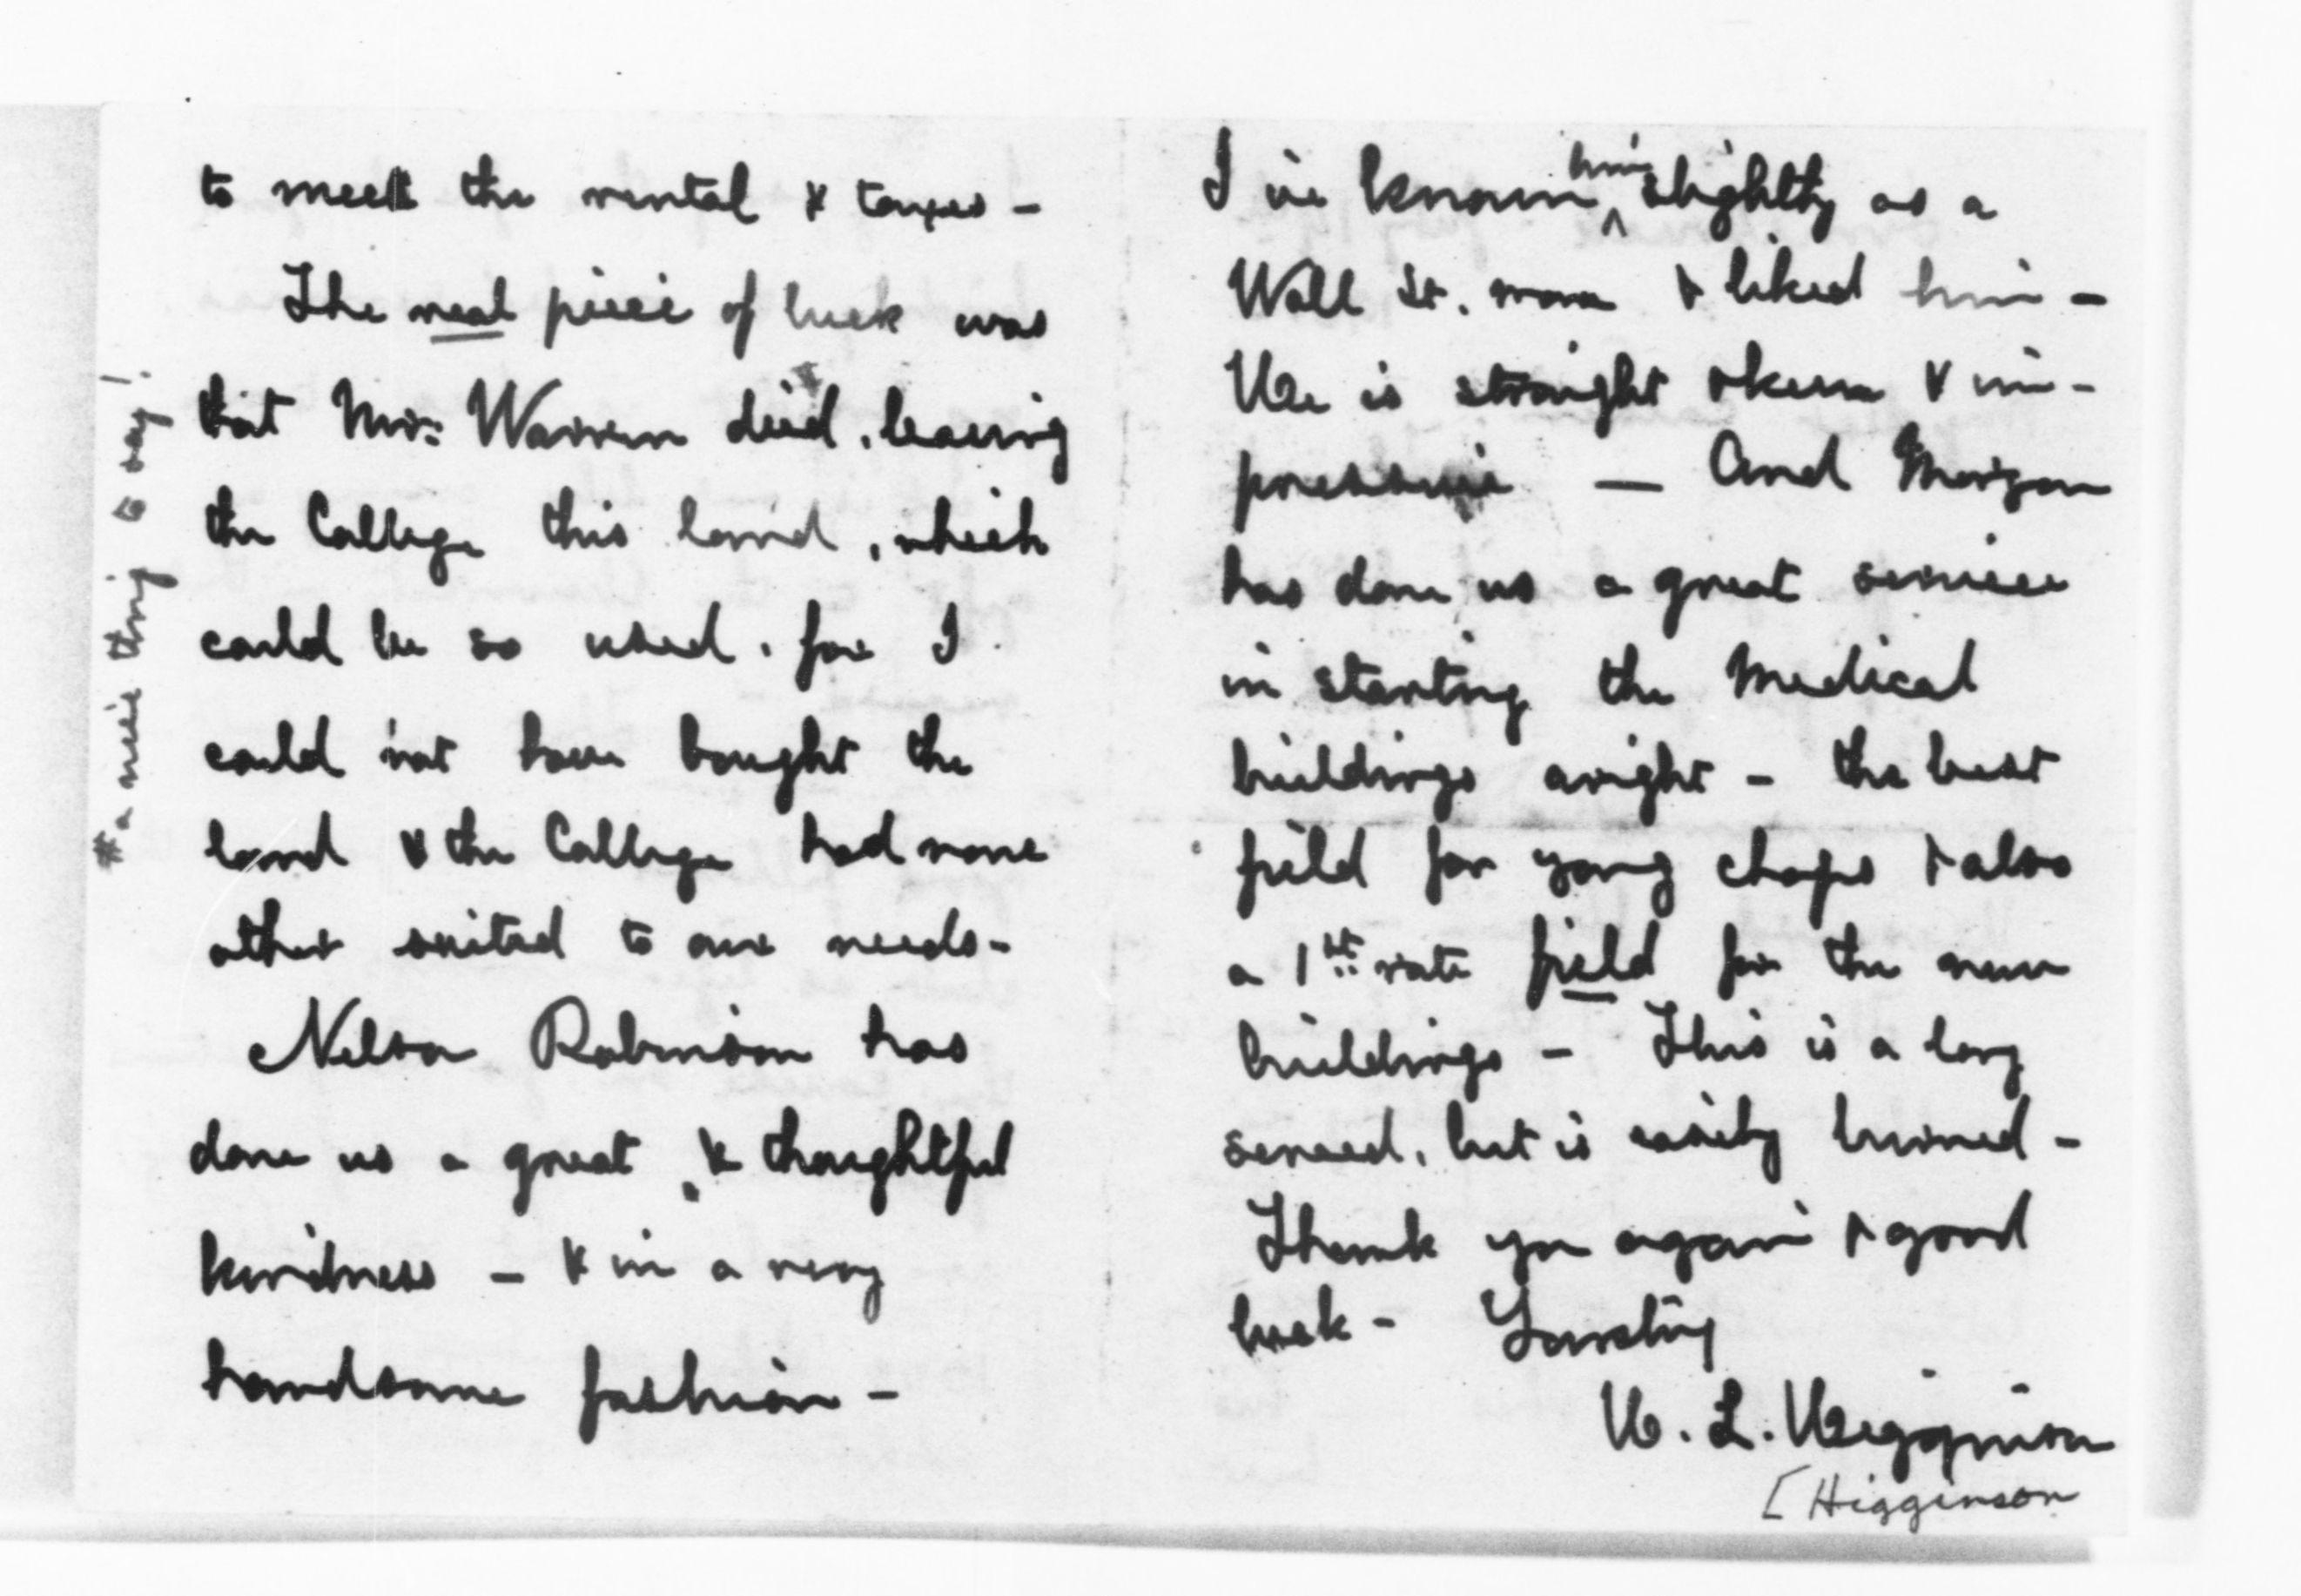 to meet the rental & taxes -
The real piece of luck was
that Mrs. Warren died *, leaving
the College this land, which
could be so used. for I
could not have bought the
land & the College had none
other suited to our needs -
Nelson Robinson has
done us a great, & thoughtful
kindness - & in a very
handsome fashion -
* a nice thing to say!
I've known him slightly as a
Wall St. man & liked him -
He is straight & keen & im-
pressive — And Morgan
has done us a great service
in starting the Medical
buildings aright - the best
field for young chaps & also
a 1st rate field for the new
buildings - This is a long
screed, but is easily burned -
Thank you again & good
luck - Yours truly
H. L. Higginson
[Higginson